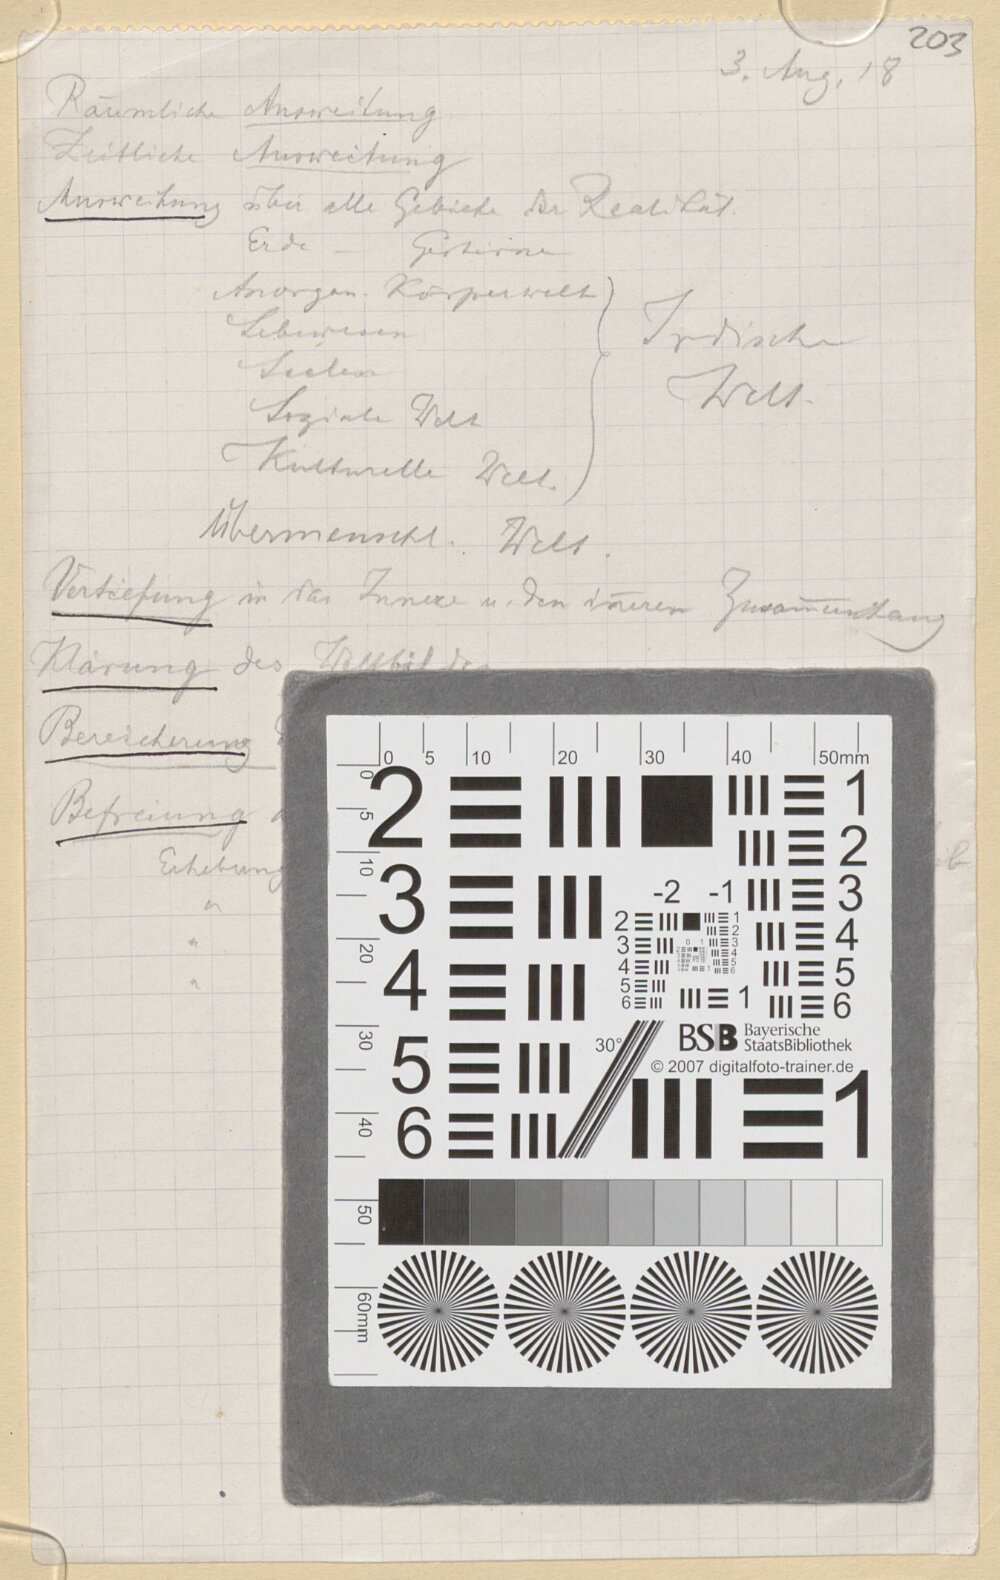 203
3. Aug. 18
Räumliche Ausweitung
Zeitliche Ausweitung
Ausweitung über alle Gebiete der Realität.
Erde – Gestirne
Anorgan. Körperwelt
Lebewesen
Irdische
Seelen
Welt.
Soziale Welt
Kulturelle Welt.
Übermenschl. Welt.
Vertiefung in das Innere u. den inneren Zusammenhang
Klärung des Weltbildes
Bereicherung
Befreiung
Erhebung
0 5 10 20 30 40 50mm
0 5 10 20 30 40 50 60mm
2 1
2
3 3
-2 -1
4 4
5 5
6 6
2 1
2
3 3
4 4
5 5
6 6
1
30°
BSB Bayerische
StaatsBibliothek
© 2007 digitalfoto-trainer.de
1